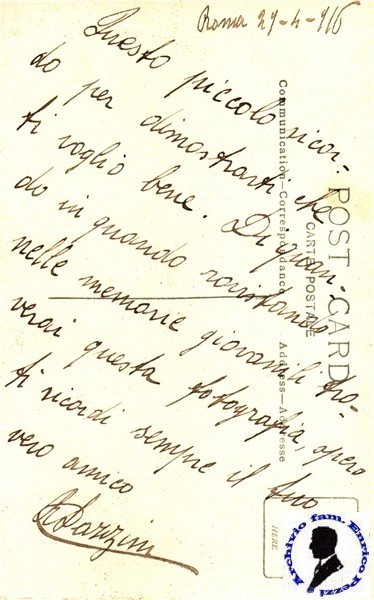 Roma 29-4-916
Questo piccolo ricor-
do per dimostrarti che
ti voglio bene. Di quan-
do in quando rovistando
nelle memorie giovanili tro-
verai questa fotografia, spero
ti ricordi sempre il tuo
vero amico
POST CARD
CARTE POSTALE
Communication—Correspondance
Address—Adresse
HERE
Archivio fam. Enrico Pezzi